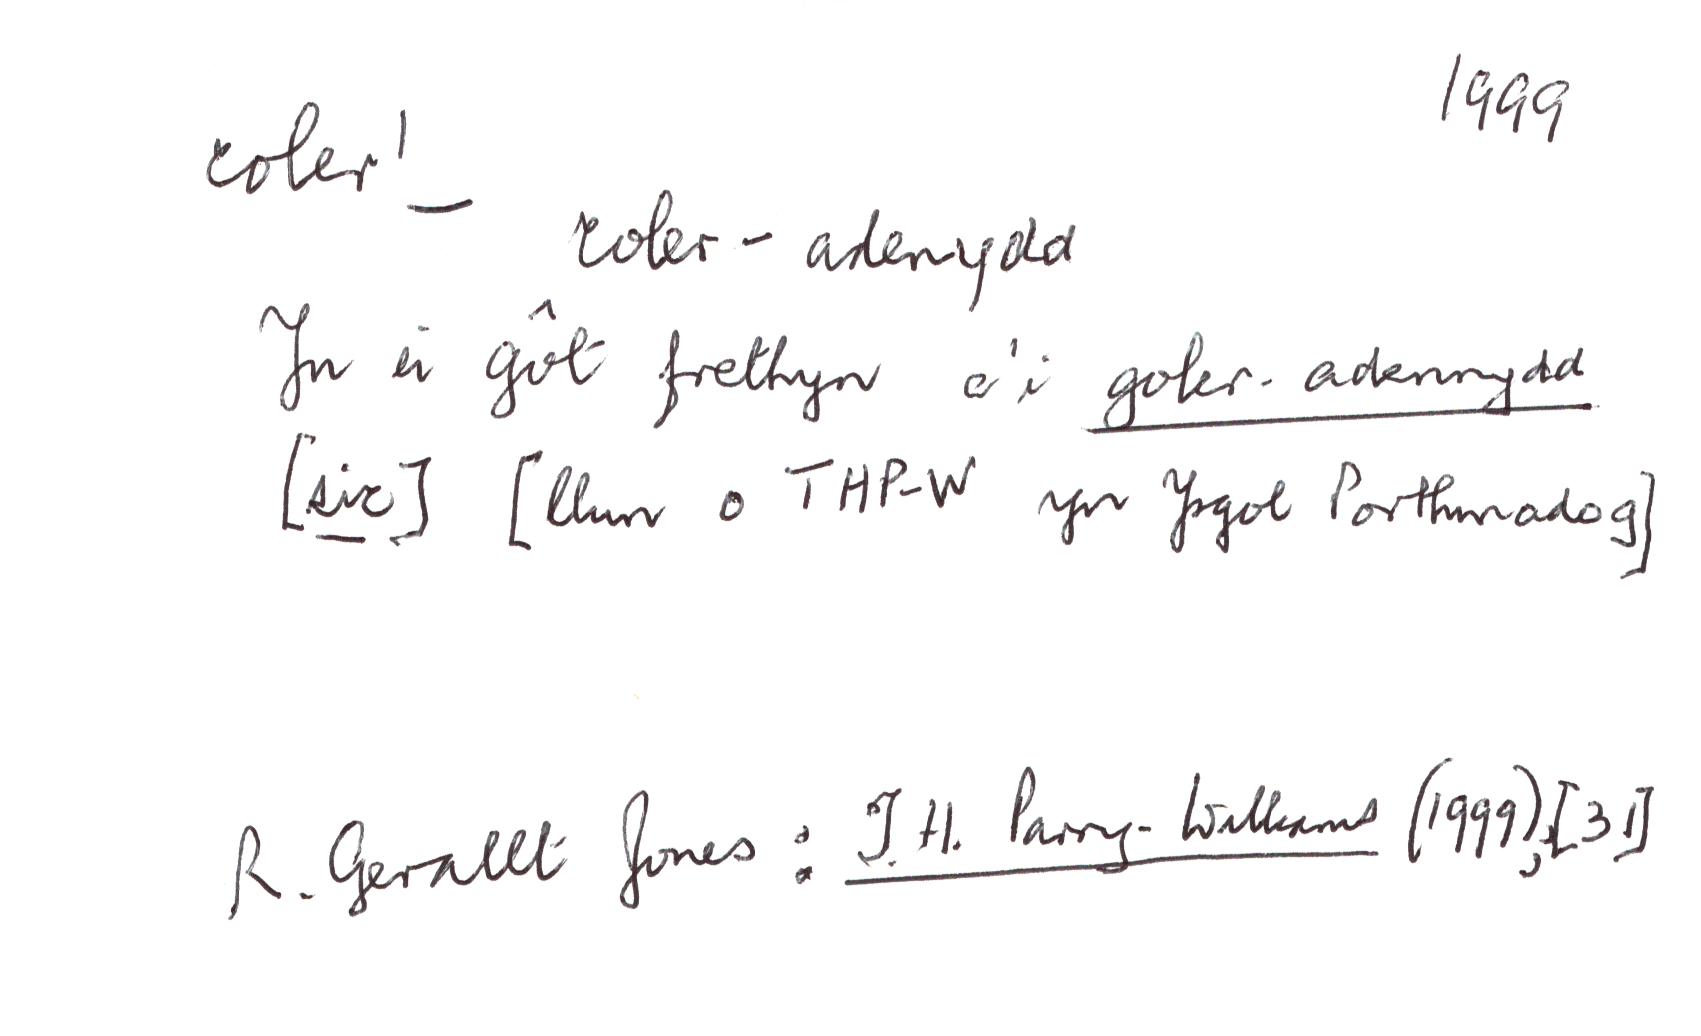 1999
coler¹ –
coler-adenydd
Yn ei gôt frethyn a'i goler-adennydd
[sic] [llun o THP-W yn Ysgol Porthmadog]
R. Gerallt Jones: T.H. Parry-Williams (1999), [31]